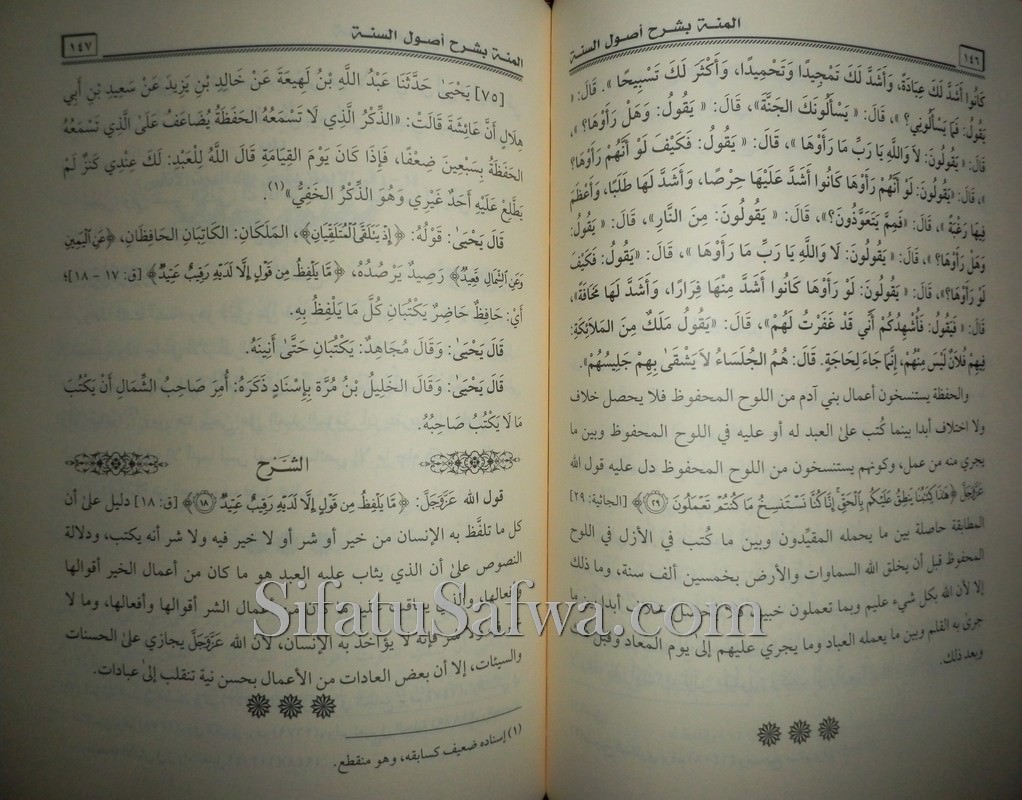 المنة بشرح أصول السنة
١٤٦
كَانُوا أَشَدَّ لَكَ عِبَادَةً، وَأَشَدَّ لَكَ تَمْجِيدًا وَتَحْمِيدًا، وَأَكْثَرَ لَكَ تَسْبِيحًا ». قَالَ: «
يَقُولُ: فَمَا يَسْأَلُونِي؟ »، قَالَ: « يَسْأَلُونَكَ الجَنَّةَ»، قَالَ: « يَقُولُ: وَهَلْ رَأَوْهَا؟ »،
قَالَ: « يَقُولُونَ: لاَ وَاللَّهِ يَا رَبِّ مَا رَأَوْهَا »، قَالَ: « يَقُولُ: فَكَيْفَ لَوْ أَنَّهُمْ رَأَوْهَا؟
»، قَالَ: «يَقُولُونَ: لَوْ أَنَّهُمْ رَأَوْهَا كَانُوا أَشَدَّ عَلَيْهَا حِرْصًا، وَأَشَدَّ لَهَا طَلَبًا، وَأَعْظَمَ
فِيهَا رَغْبَةً »، قَالَ: «فَمِمَّ يَتَعَوَّذُونَ؟»، قَالَ: « يَقُولُونَ: مِنَ النَّارِ»، قَالَ: « يَقُولُ:
وَهَلْ رَأَوْهَا؟ »، قَالَ: « يَقُولُونَ: لاَ وَاللَّهِ يَا رَبِّ مَا رَأَوْهَا »، قَالَ: «يَقُولُ: فَكَيْفَ
لَوْ رَأَوْهَا؟»، قَالَ: « يَقُولُونَ: لَوْ رَأَوْهَا كَانُوا أَشَدَّ مِنْهَا فِرَارًا، وَأَشَدَّ لَهَا مَخَافَةً»،
قَالَ: « فَيَقُولُ: فَأُشْهِدُكُمْ أَنِّي قَدْ غَفَرْتُ لَهُمْ»، قَالَ: «يَقُولُ مَلَكٌ مِنَ المَلاَئِكَةِ:
فِيهِمْ فُلاَنٌ لَيْسَ مِنْهُمْ، إِنَّمَا جَاءَ لِحَاجَةٍ. قَالَ: هُمُ الجُلَسَاءُ لاَ يَشْقَى بِهِمْ جَلِيسُهُمْ».
والحفظة يستنسخون أعمال بني آدم من اللوح المحفوظ فلا يحصل خلاف
ولا اختلاف أبدا بينما كُتب على العبد له أو عليه في اللوح المحفوظ وبين ما
يجري منه من عمل، وكونهم يستنسخون من اللوح المحفوظ دل عليه قول الله
عَزَّوَجَلَّ ﴿هَذَا كِتَابُنَا يَنطِقُ عَلَيْكُم بِالْحَقِّ إِنَّا كُنَّا نَسْتَنسِخُ مَا كُنتُمْ تَعْمَلُونَ ۝٢٩﴾ [الجاثية: ٢٩]
المطابقة حاصلة بين ما يحمله المقيِّدون وبين ما كُتب في الأزل في اللوح
المحفوظ قبل أن يخلق الله السماوات والأرض بخمسين ألف سنة، وما ذلك
إلا لأن الله بكل شيء عليم وبما تعملون خبير، فلا يحصل خلاف أبدا بين ما
جرى به القلم وبين ما يعمله العباد وما يجري عليهم إلى يوم المعاد وقبل
وبعد ذلك.
المنة بشرح أصول السنة
١٤٧
[٧٥] يَحْيَى حَدَّثَنَا عَبْدُ اللَّهِ بْنُ لَهِيعَةَ عَنْ خَالِدِ بْنِ يَزِيدَ عَنْ سَعِيدِ بْنِ أَبِي
هِلَالٍ أَنَّ عَائِشَةَ قَالَتْ: «الذِّكْرُ الَّذِي لَا تَسْمَعُهُ الحَفَظَةُ يُضَاعَفُ عَلَى الَّذِي تَسْمَعُهُ
الحَفَظَةُ بِسَبْعِينَ ضِعْفًا، فَإِذَا كَانَ يَوْمَ القِيَامَةِ قَالَ اللَّهُ لِلْعَبْدِ: لَكَ عِنْدِي كَنْزٌ لَمْ
يَطَّلِعْ عَلَيْهِ أَحَدٌ غَيْرِي وَهُوَ الذِّكْرُ الخَفِيُّ»(١).
قَالَ يَحْيَى: قَوْلُهُ: ﴿إِذْ يَتَلَقَّى الْمُتَلَقِّيَانِ﴾، المَلَكَانِ: الكَاتِبَانِ الحَافِظَانِ، ﴿عَنِ الْيَمِينِ
وَعَنِ الشِّمَالِ قَعِيدٌ﴾ رَصِيدٌ يَرْصُدُهُ، ﴿مَا يَلْفِظُ مِن قَوْلٍ إِلَّا لَدَيْهِ رَقِيبٌ عَتِيدٌ﴾ [ق: ١٧ - ١٨]؛
أَيْ: حَافِظٌ حَاضِرٌ يَكْتُبَانِ كُلَّ مَا يَلْفِظُ بِهِ.
قَالَ يَحْيَى: وَقَالَ مُجَاهِدٌ: يَكْتُبَانِ حَتَّى أَنِينَهُ.
قَالَ يَحْيَى: وَقَالَ الخَلِيلُ بْنُ مُرَّةَ بِإِسْنَادٍ ذَكَرَهُ: أُمِرَ صَاحِبُ الشِّمَالِ أَنْ يَكْتُبَ
مَا لَا يَكْتُبُ صَاحِبُهُ.
الشَرْح
قول الله عَزَّوَجَلَّ: ﴿مَّا يَلْفِظُ مِن قَوْلٍ إِلَّا لَدَيْهِ رَقِيبٌ عَتِيدٌ ۝١٨﴾ [ق: ١٨] دليل على أن
كل ما تلفَّظ به الإنسان من خير أو شر أو لا خير فيه ولا شر أنه يكتب، ودلالة
النصوص على أن الذي يثاب عليه العبد هو ما كان من أعمال الخير أقوالها
وأفعالها، والذي يعاقب عليه ما كان من أعمال الشر أقوالها وأفعالها، وما لا
خير فيه ولا شر فإنه لا يؤاخذ به الإنسان، لأن الله عَزَّوَجَلَّ يجازي على الحسنات
والسيئات، إلا أن بعض العادات من الأعمال بحسن نية تنقلب إلى عبادات.
(١) إسناده ضعيف كسابقه، وهو منقطع.
SifatuSafwa.com